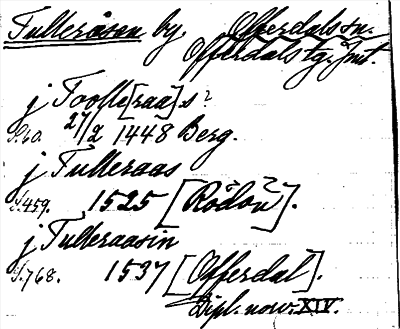 Tulleråsen by, Offerdals sn.
Offerdals tg. Jmt.
j Foolle[raa]s?
S. 60. 27/2 1448 Berg.
j Tulleraas
S. 459. 1525 [Rödön?].
j Tulleraasin
S. 768. 1537 [Offerdal].
Dipl. norv. XIV.